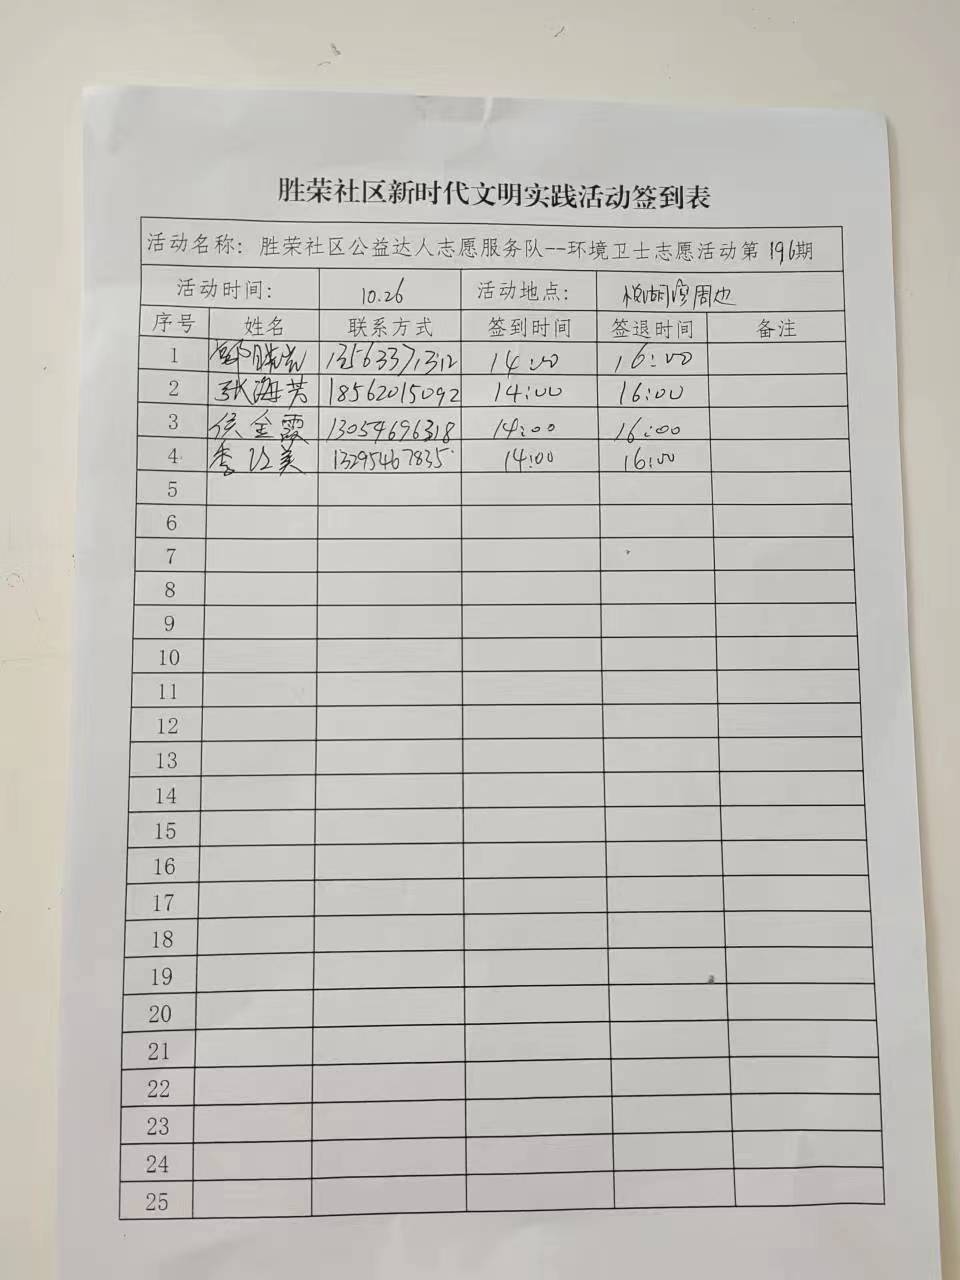 胜荣社区新时代文明实践活动签到表
活动名称：胜荣社区公益达人志愿服务队--环境卫士志愿活动第196期
活动时间： 10.26 活动地点： 悦湖湾周边
序号 姓名 联系方式 签到时间 签退时间 备注
1 13563371312 14:00 16:00
2 张海芳 18562015092 14:00 16:00
3 侯金霞 13054696318 14:00 16:00
4 李 美 13295467835 14:00 16:00
5
6
7
8
9
10
11
12
13
14
15
16
17
18
19
20
21
22
23
24
25